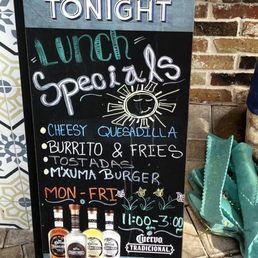 TONIGHT
LUNCH
Specials
• CHEESY QUESADILLA
• BURRITO & FRIES
• TOSTADAS
• MXUMA BURGER
MON-FRI
11:00-3:00
Cuervo
TRADICIONAL